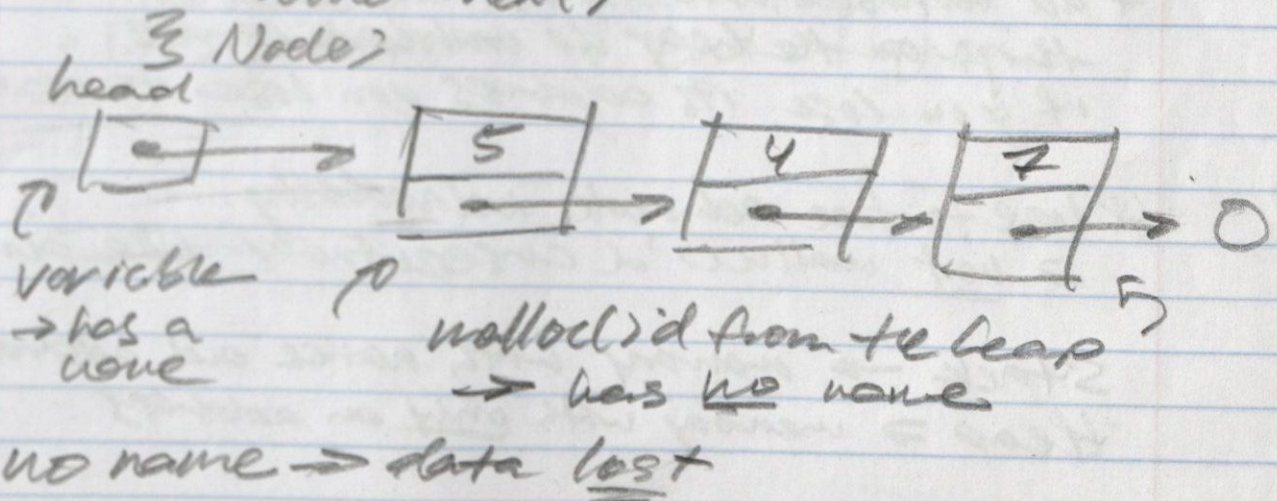 } Node;
head
5 4 7 0
variable
→ has a
name
malloc()'d from the heap
→ has no name
no name → data lost